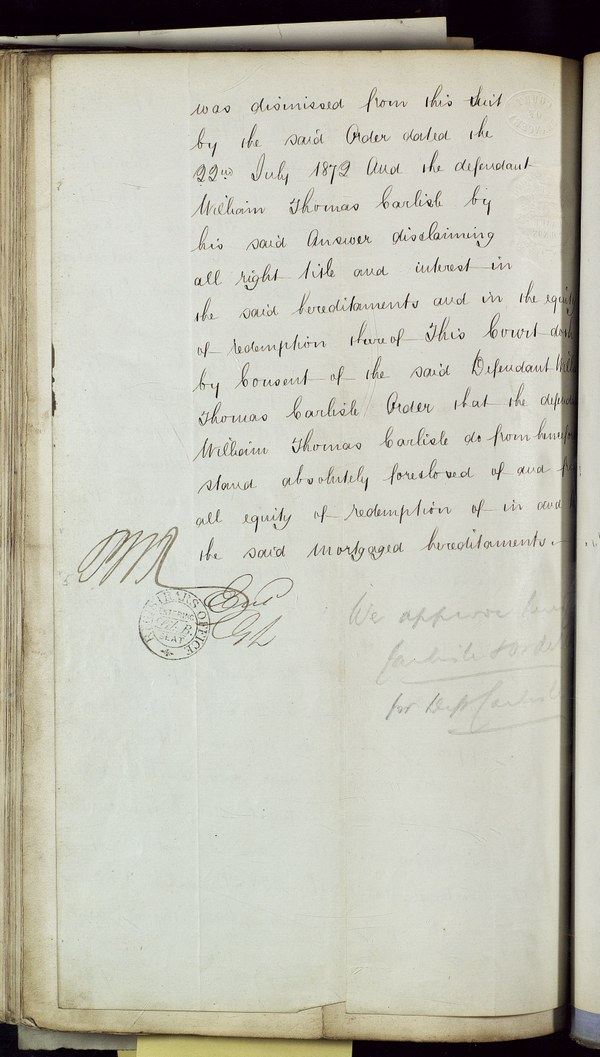 was dismissed from this Suit
by the said Order dated the
22nd July 1872 And the defendant
William Thomas Carlisle by
his said Answer disclaiming
all right title and interest in
the said hereditaments and in the equity
of redemption thereof This Court doth
by Consent of the said Defendant Will
Thomas Carlisle Order that the defend
William Thomas Carlisle do from hencefor
stand absolutely foreclosed of and fr
all equity of redemption of in and
the said mortgaged hereditaments.
We approve
Carlisle & Ordell
for Deft Carlisle
REGISTRARS OFFICE
SEAT